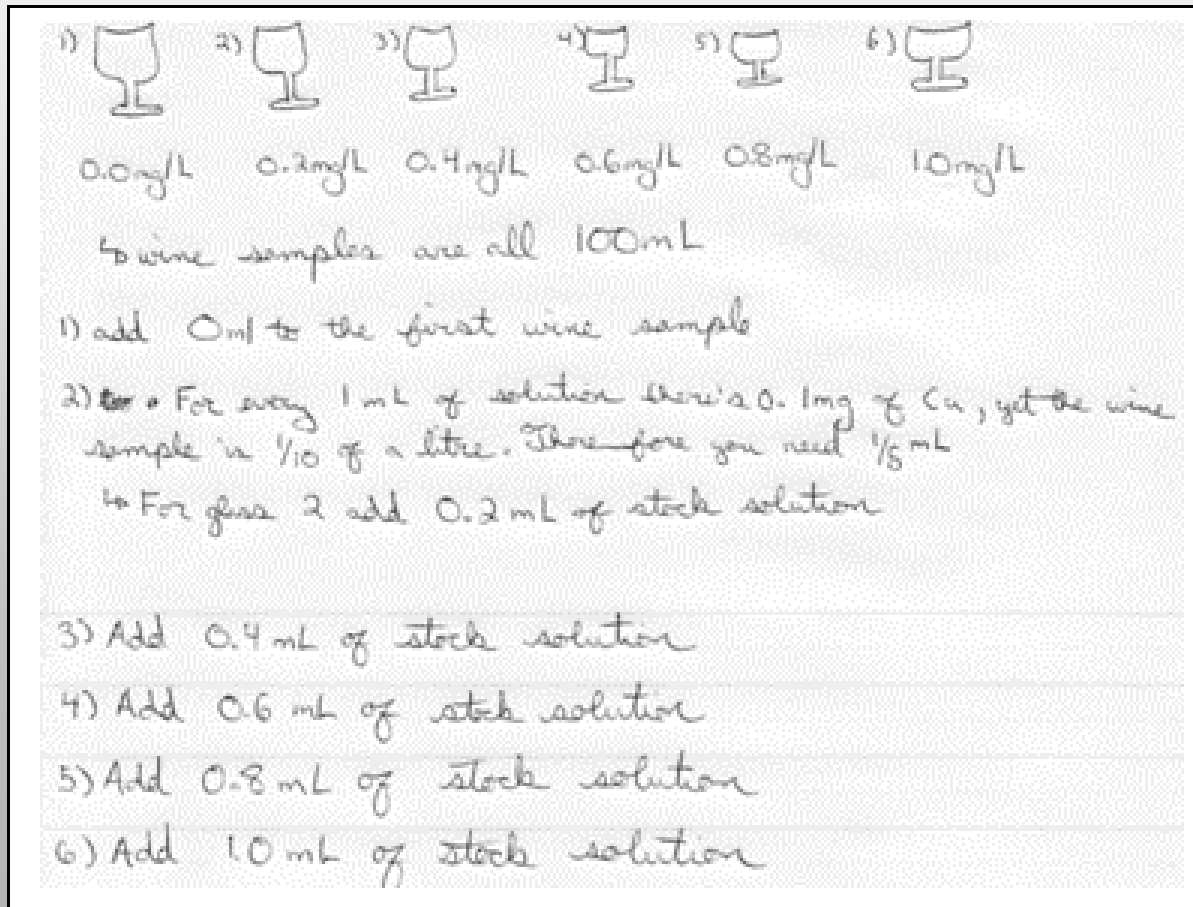 1) 2) 3) 4) 5) 6)
0.0mg/L 0.2mg/L 0.4mg/L 0.6mg/L 0.8mg/L 1.0mg/L
↳ wine samples are all 100mL
1) add 0ml to the first wine sample
2) • For every 1mL of solution there's 0.1mg of Cu, yet the wine
sample is 1/10 of a litre. Therefore you need 1/5 mL
↳ For glass 2 add 0.2mL of stock solution
3) Add 0.4mL of stock solution
4) Add 0.6 mL of stock solution
5) Add 0.8mL of stock solution
6) Add 1.0 mL of stock solution